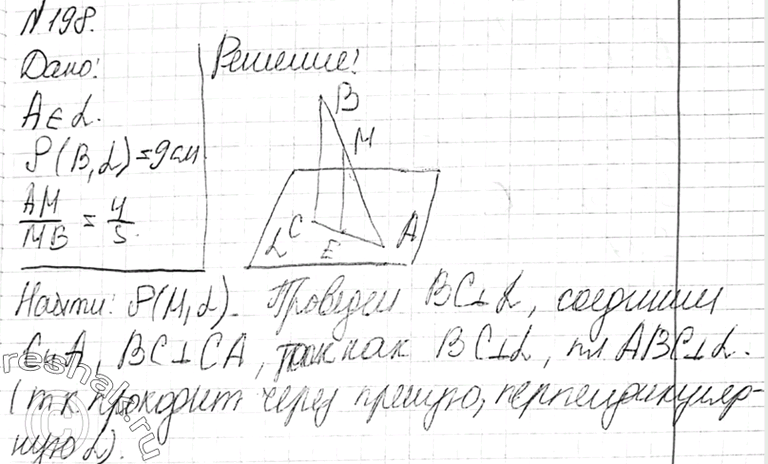 №198.
Дано:
A∈α.
ρ(B,α)=9см
AM/MB = 4/5.
Найти: ρ(M,α).
Решение:
B
M
C
E
A
α
Проведем BC⊥α, соединим
C и A, BC⊥CA, так как BC⊥α, пл ABC⊥α.
(т к проходит через прямую, перпендикуляр-
ную α).
reshak.ru